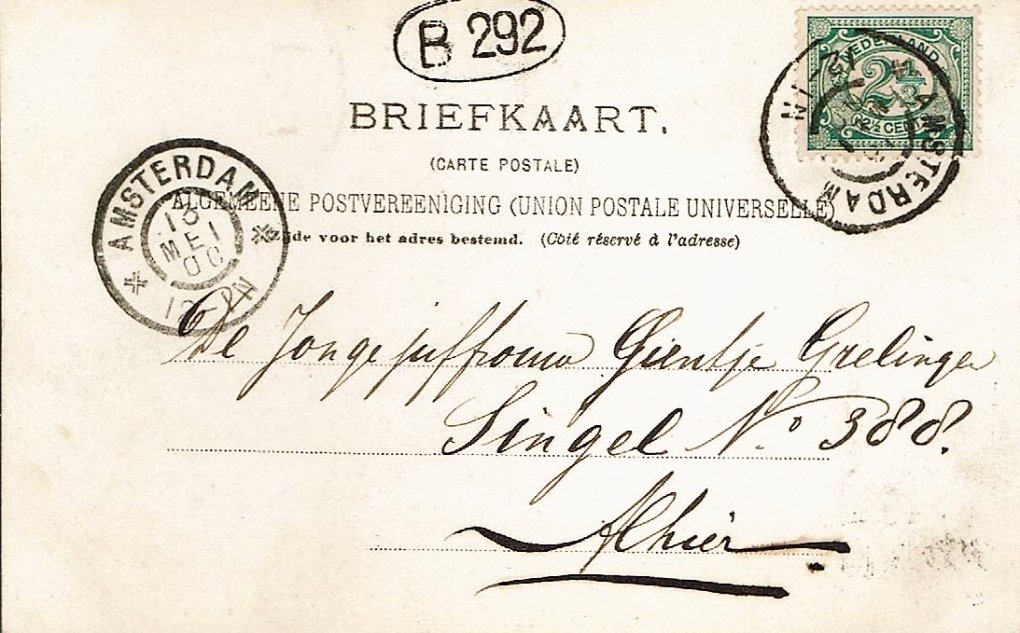 B 292
NEDERLAND
2½
2½ CENT
AMSTERDAM
BRIEFKAART.
(CARTE POSTALE)
AMSTERDAM
MEI
ALGEMEENE POSTVEREENIGING (UNION POSTALE UNIVERSELLE)
Zijde voor het adres bestemd. (Côté réservé à l'adresse)
De Jonge juffrouw Gientje Grelinger
Singel No 388.
Alhier